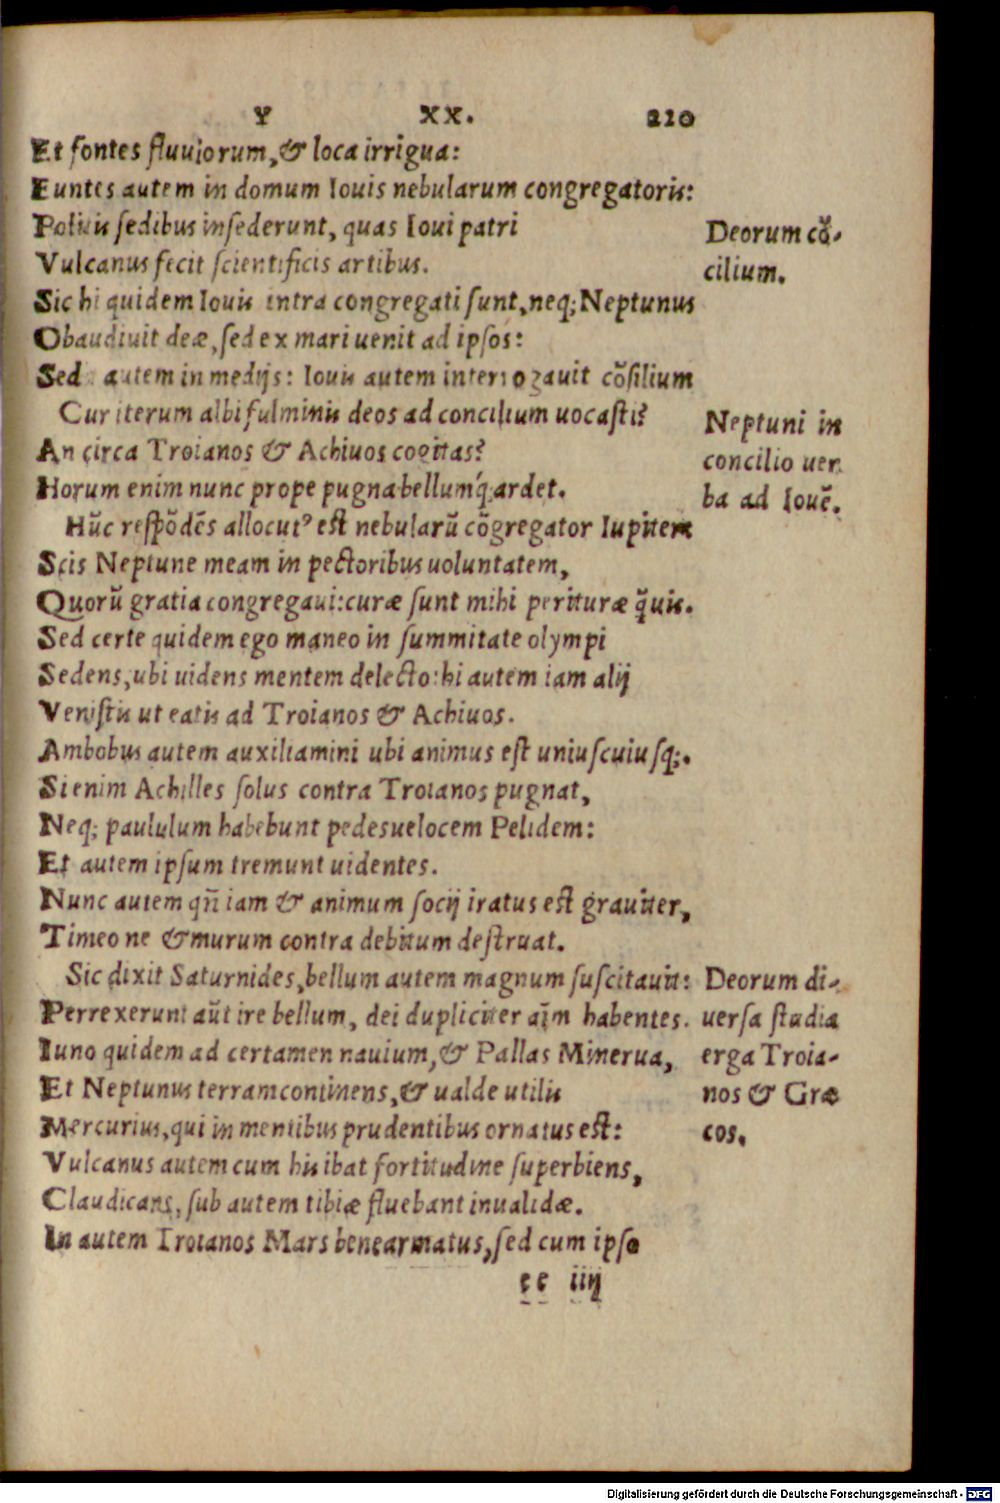 Y XX. 210
Et fontes fluuiorum, & loca irrigua:
Euntes autem in domum Iouis nebularum congregatoris:
Politis sedibus insederunt, quas Ioui patri
Vulcanus fecit scientificis artibus.
Deorum cõ-
cilium.
Sic hi quidem Iouis intra congregati sunt, neq; Neptunus
Obaudiuit deæ, sed ex mari uenit ad ipsos:
Sed autem in medijs: Iouis autem interrogauit cõsilium
Cur iterum albifulminis deos ad concilium uocasti?
An circa Troianos & Achiuos cogitas?
Horum enim nunc prope pugna bellumq́; ardet.
Neptuni in
concilio uer
ba ad Iouẽ.
Hũc respõdẽs allocutꝰ est nebularũ cõgregator Iupiter
Scis Neptune meam in pectoribus uoluntatem,
Quorũ gratia congregaui: curæ sunt mihi perituræ q̃uis.
Sed certe quidem ego maneo in summitate olympi
Sedens, ubi uidens mentem delecto: hi autem iam alij
Venistis ut eatis ad Troianos & Achiuos.
Ambobus autem auxiliamini ubi animus est uniuscuiusq;.
Si enim Achilles solus contra Troianos pugnat,
Neq; paululum habebunt pedesuelocem Pelidem:
Et autem ipsum tremunt uidentes.
Nunc autem qñ iam & animum socij iratus est grauiter,
Timeo ne & murum contra debitum destruat.
Sic dixit Saturnides, bellum autem magnum suscitauit:
Perrexerunt aũt ire bellum, dei dupliciter aĩm habentes.
Iuno quidem ad certamen nauium, & Pallas Minerua,
Et Neptunus terramcontinens, & ualde utilis
Mercurius, qui in mentibus prudentibus ornatus est:
Deorum di-
uersa studia
erga Troia-
nos & Græ
cos.
Vulcanus autem cum his ibat fortitudine superbiens,
Claudicans, sub autem tibiæ fluebant inualidæ.
In autem Troianos Mars benearmatus, sed cum ipso
ee iiij
Digitalisierung gefördert durch die Deutsche Forschungsgemeinschaft - DFG